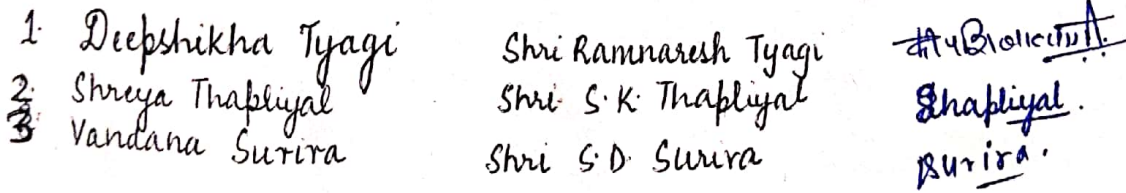 1. Deepshikha Tyagi Shri Ramnaresh Tyagi
2. Shreya Thapliyal Shri S.K. Thapliyal Sthapliyal.
3 Vandana Surira Shri S.D. Surira Surira.